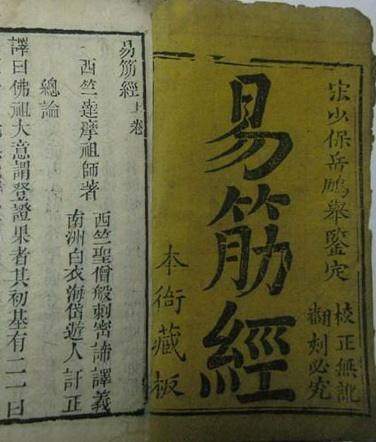 宋少保岳鵬舉鑒定
校正無訛
翻刻必究
易筋經
本衙藏板
易筋經上卷
西竺達摩祖師著
西竺聖僧般剌密諦譯義
南洲白衣海岱遊人訂正
總論
譯曰佛祖大意謂登證果者其初基有二一曰